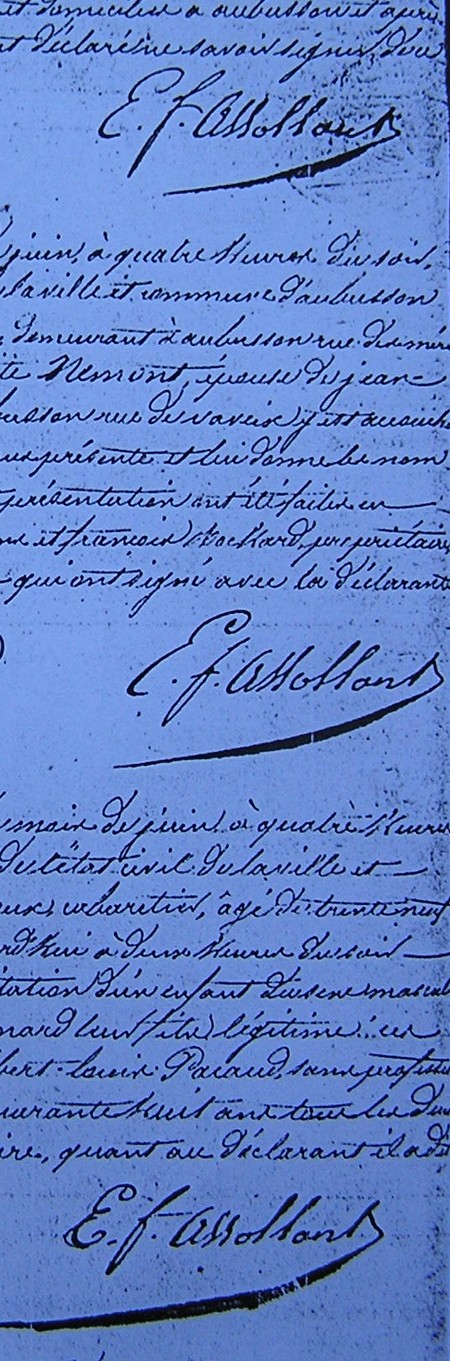 et domicilié à aubusson et après
et déclaré ne savoir signer, dou
E. f. Assollant
juin, à quatre heures du soir,
la ville et commune d'aubusson
, demeurant à aubusson rue des
Nemont, épouse de jean
busson rue de vaveix y est accouché
présente et lui donne les nom
présentation ont été faites en
et françois Rockard, propriétaire
qui ont signé avec la déclarante
E. f. Assollant
mois de juin à quatre heures
de l'état civil de la ville et
cabaretier, âgé de trente neuf
à deux heures du soir
tation d'un enfant du sexe mascul
nard leur fils légitime : ces
bert-louis Pacaud, sans profession
quarante huit ans tous les deux
ire, quant au déclarant il a dit
E. f. Assollant